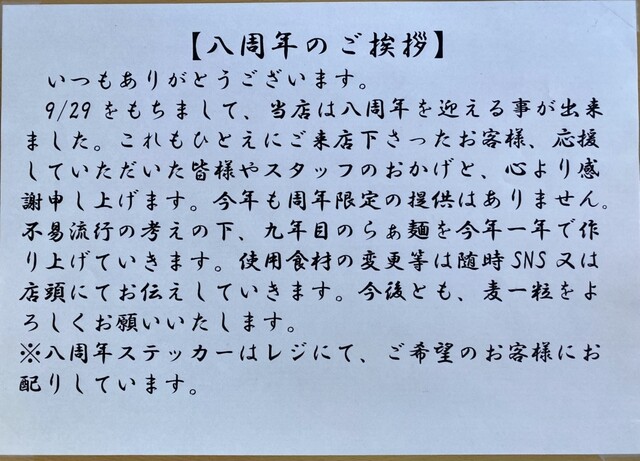 【八周年のご挨拶】
いつもありがとうございます。
9/29をもちまして、当店は八周年を迎える事が出来
ました。これもひとえにご来店下さったお客様、応援
していただいた皆様やスタッフのおかげと、心より感
謝申し上げます。今年も周年限定の提供はありません。
不易流行の考えの下、九年目のらぁ麺を今年一年で作
り上げていきます。使用食材の変更等は随時SNS又は
店頭にてお伝えしていきます。今後とも、麦一粒をよ
ろしくお願いいたします。
※八周年ステッカーはレジにて、ご希望のお客様にお
配りしています。